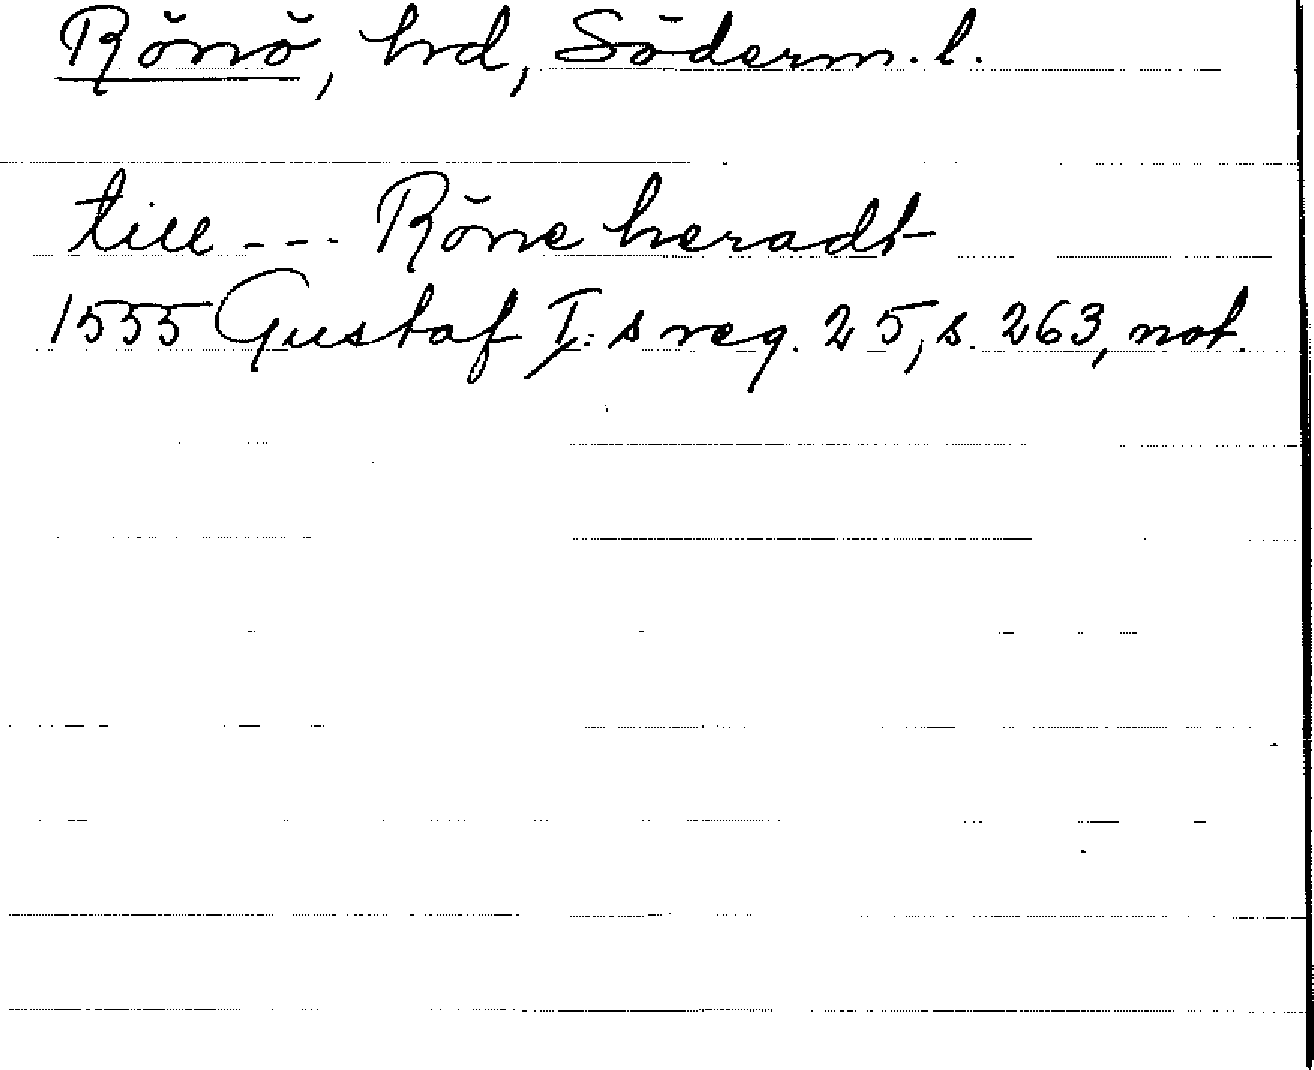 Rönö, hrd, Söderm. l.
till --- Röne heradt
1555 Gustaf I:s reg. 25, s. 263, not.